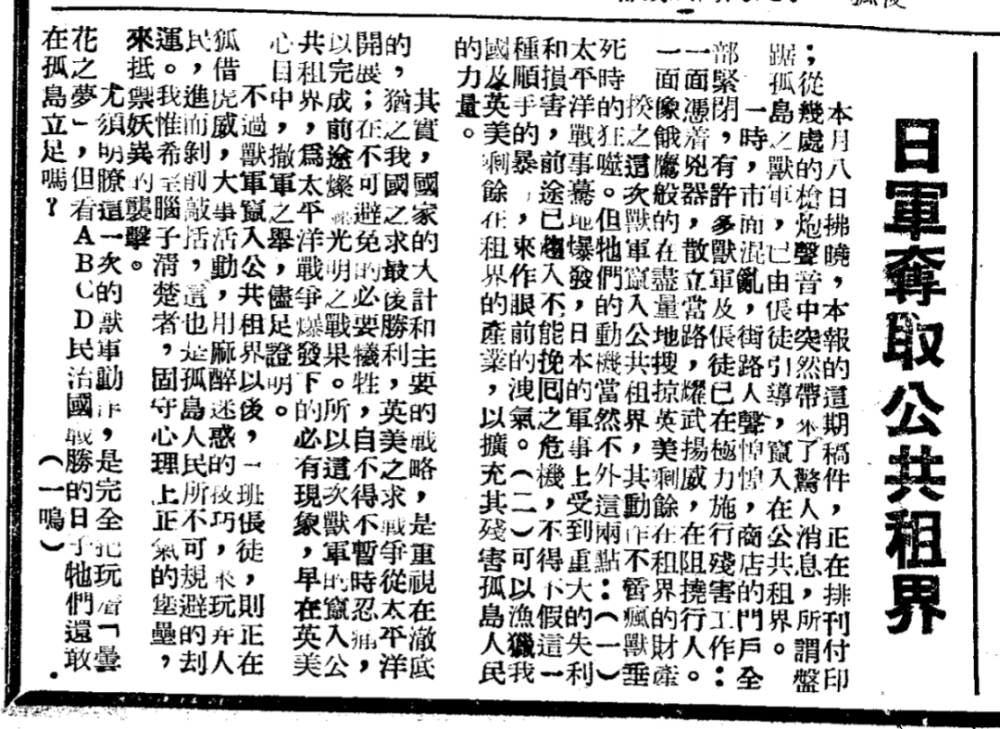 日軍奪取公共租界
本月八日拂曉,本報的這期稿件,正在排刊付印
;從幾處的槍炮聲音中突然帶來了驚人消息,所謂盤
踞孤島之獸軍,已由倀徒引導,竄入在公共租界。
一時,市面混亂,街路人聲惶惶,商店的門戶全
部緊閉,有許多獸軍及倀徒已在極力施行殘害工作:
一面憑着兇器,散立當路,耀武揚威,在阻撓行人。
一面像餓鷹般的在盡量地搜掠英美剩餘在租界的財產
揆之這次獸軍竄入公共租界,其動作不啻瘋獸垂
死時的狂噬。但牠們的動機當然不外這兩點:(一)
太平洋戰事驀地爆發,日本的軍事上受到重大的失利
和損害,前途已趨入不能挽囘之危機,不得不假這一
種順手的暴,來作眼前的洩氣。(二)可以漁獵我
國及英美剩餘在租界的產業,以擴充其殘害孤島人民
的力量。
其實,國家的大計和主要的戰略,是重視在澈底
的,猶之我國之求最後勝利,英美之求戰爭從太平洋
開展;在不可避免的必要犧牲,自不得不暫時忍痛,
以完成前途燦光明之戰果。所以這次獸軍的竄入公
共租界,爲太平洋戰爭爆發下的必有現象,早在英美
心目中,撤軍之舉,儘足證明。
不過獸軍竄入公共租界以後,一班倀徒,則正在
狐借虎威,大事活動,用麻醉迷惑的技巧,來玩弄人
民,進而剝削敲括,這也是孤島人民所不可規避的刦
運。我惟希望腦子清楚者,固守心理上正氣的堡壘,
來抵禦妖異的襲擊。
尤須明瞭這一次的獸軍動作,是完全把玩着「曇
花之夢」,但看ABCD民治國戰勝的日子牠們還敢
在孤島立足嗎?(一鳴)